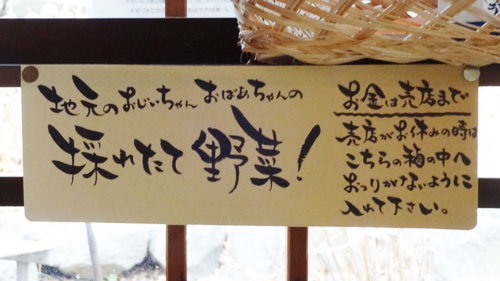 地元のおじいちゃん おばあちゃんの
採れたて野菜!
お金は売店まで
売店がお休みの時は
こちらの箱の中へ
おつりがないように
入れて下さい。